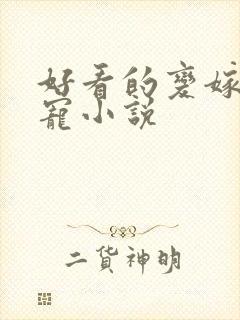 好看的爱嫁
宠小说
二货神明